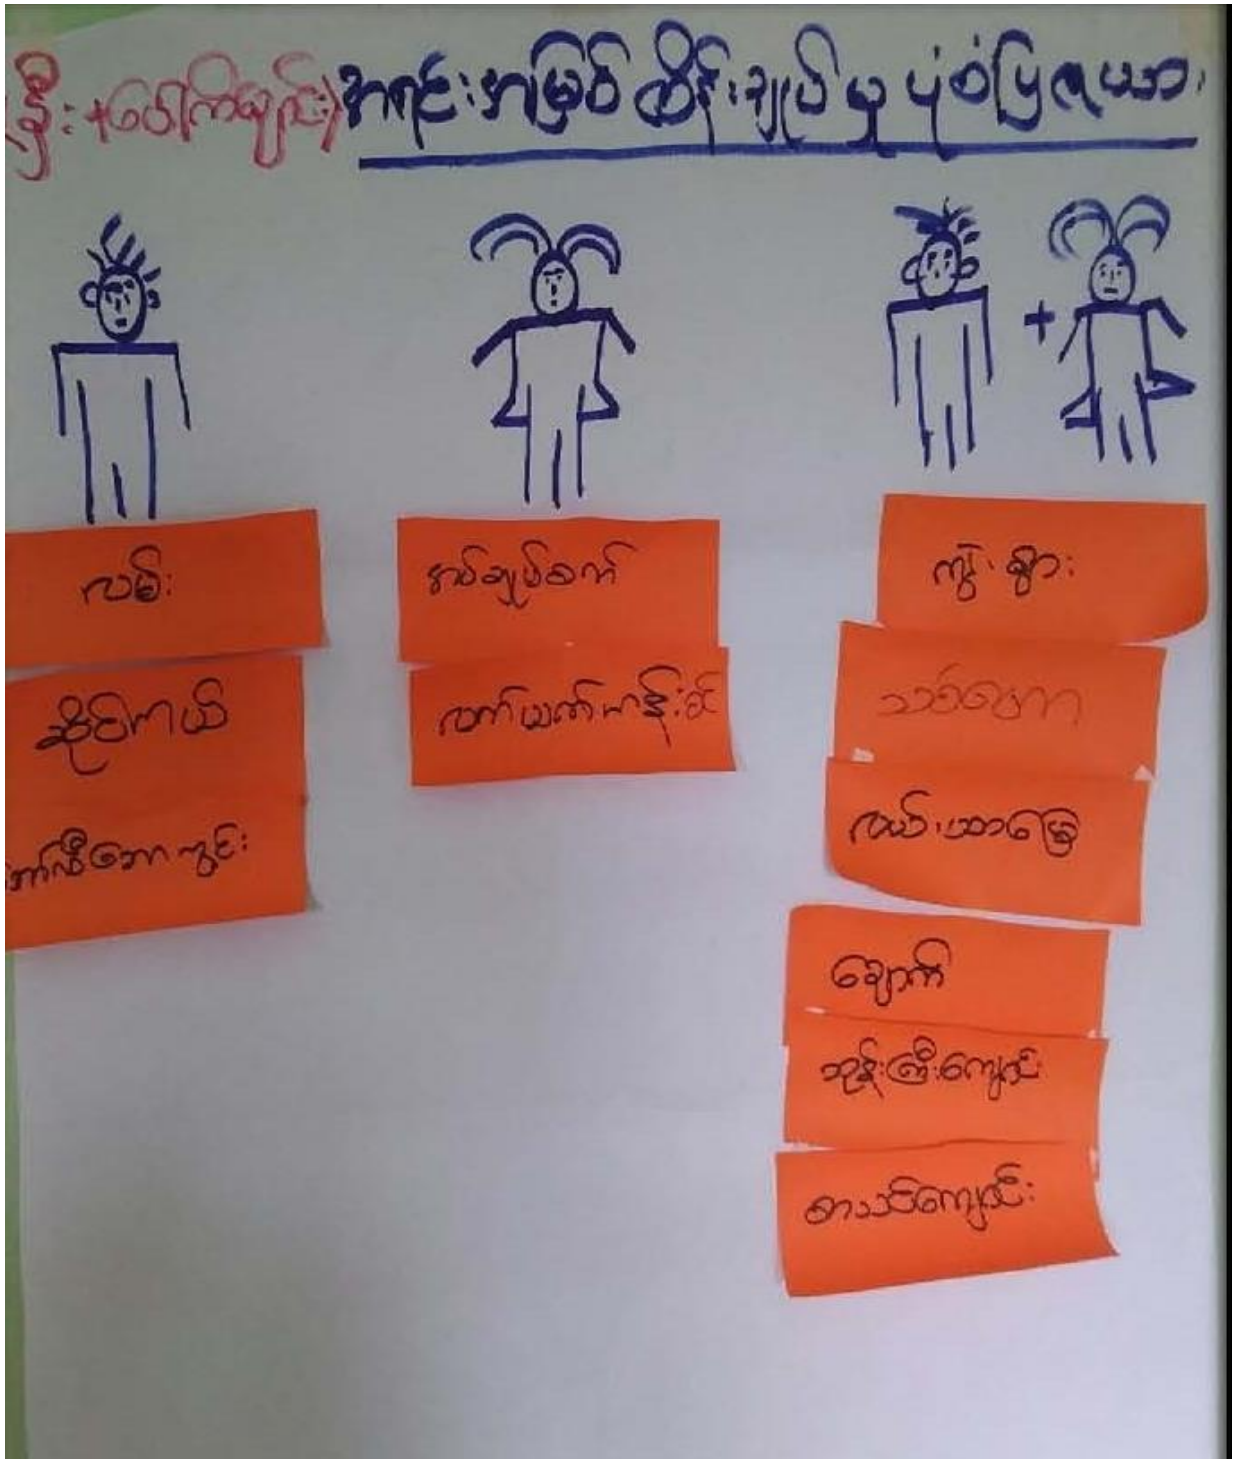 အရင်းအမြစ် ထိန်းချုပ်မှု ပုံစံပြဇယား
+
လမ်း
ဆိုင်ကယ်
ဘော်လီဘောကွင်း
အပ်ချုပ်စက်
လက်ယက်ကန်းစင်
ကျွဲ၊ နွား
သစ်တော
လယ်ယာမြေ
ချောက်
ဘုန်းကြီးကျောင်း
စာသင်ကျောင်း